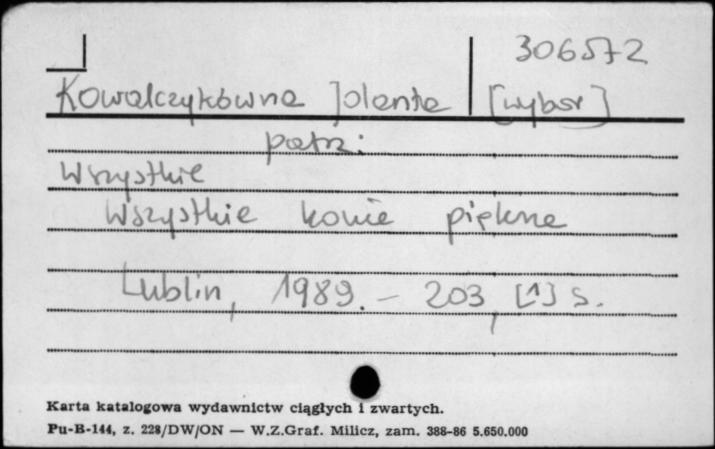 306572
Kowalczykówna Jolanta [wybór]
patrz:
Wszystkie
Wszystkie konie piękne
Lublin, 1989. – 203, [1] s.
Karta katalogowa wydawnictw ciągłych i zwartych.
Pu-B-144, z. 228/DW/ON — W.Z.Graf. Milicz, zam. 388-86 5.650.000